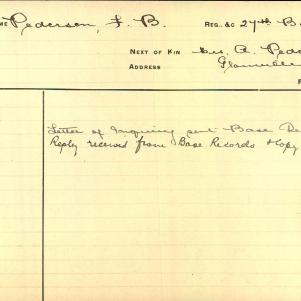 ME Pedersen, F. B. REG. &C 27th B
NEXT OF KIN Mrs. A. Pede
ADDRESS Granville
Letter of Inquiry sent Base Re
Reply received from Base Records & Copy